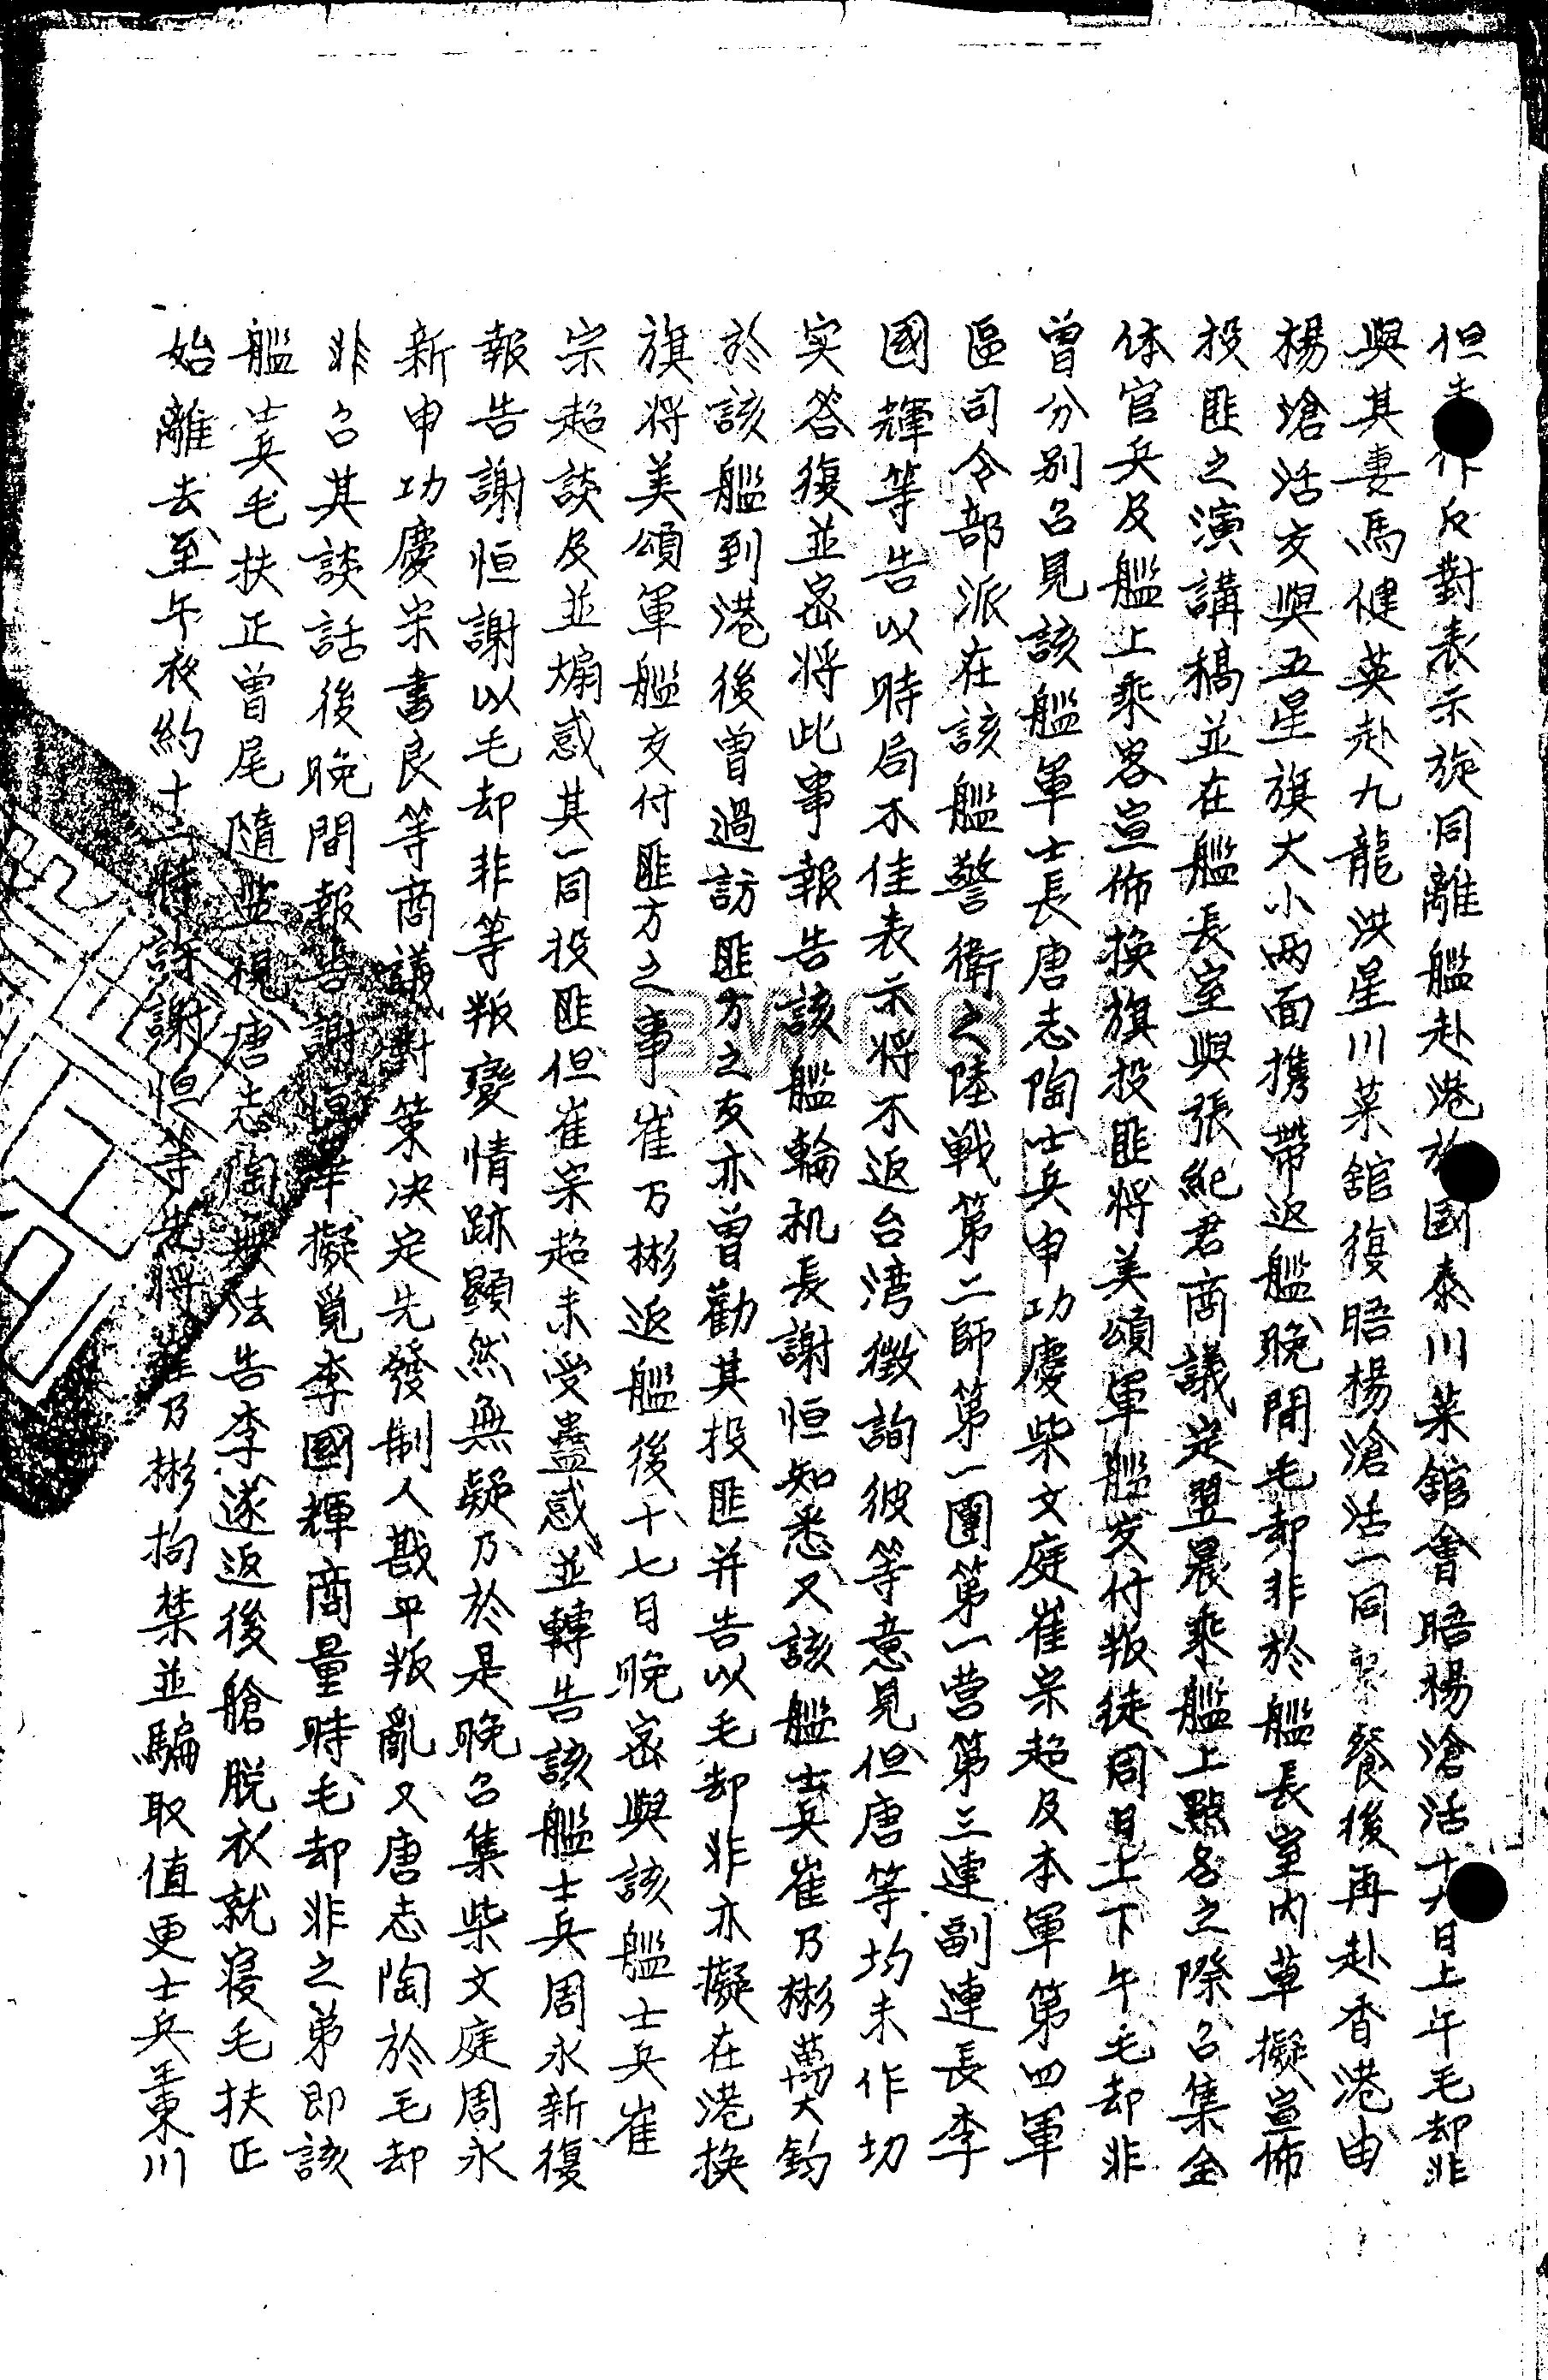 但未作反對表示旋同離艦赴港於國泰川菜舘會晤楊滄活十六日上午毛却非
與其妻馬健英赴九龍洪星川菜舘復晤楊滄活一同聚餐後再赴香港由
楊滄活交與五星旗大小两面携帶返艦晚間毛却非於艦長室內草擬宣佈
投匪之演講稿並在艦長室與張紀君商議定翌晨乘艦上點名之際召集全
体官兵及艦上乘客宣佈換旗投匪將美頌軍艦交付叛徒同日上下午毛却非
曾分别召見該艦軍士長唐志陶士兵申功慶柴文庭崔宗超及本軍第四軍
區司令部派在該艦警衛之陸戰第二師第一團第一营第三連副連長李
國輝等告以時局不佳表示將不返台湾徵詢彼等意見但唐等均未作切
实答復並密将此事報告該艦輪机長謝恒知悉又該艦士兵崔乃彬萬大鈞
於該艦到港後曾過訪匪方之友亦曾勸其投匪并告以毛却非亦擬在港換
旗将美頌軍艦交付匪方之事崔乃彬返艦後十七日晚密與該艦士兵崔
宗超談及並煽惑其一同投匪但崔宗超未受蠱惑並轉告該艦士兵周永新復
報告謝恒謝以毛却非等叛變情跡顯然無疑乃於是晚召集柴文庭周永
新申功慶宋書良等商議對策决定先發制人戡平叛亂又唐志陶於毛却
非召其談話後晚間報告謝恒畢擬覓李國輝商量時毛却非之弟即該
艦士兵毛扶正曾尾隨監視唐志陶無法告李遂返後艙脱衣就寝毛扶正
始離去至午夜約十二時許謝恒等先將崔乃彬拘禁並騙取值更士兵葉東川